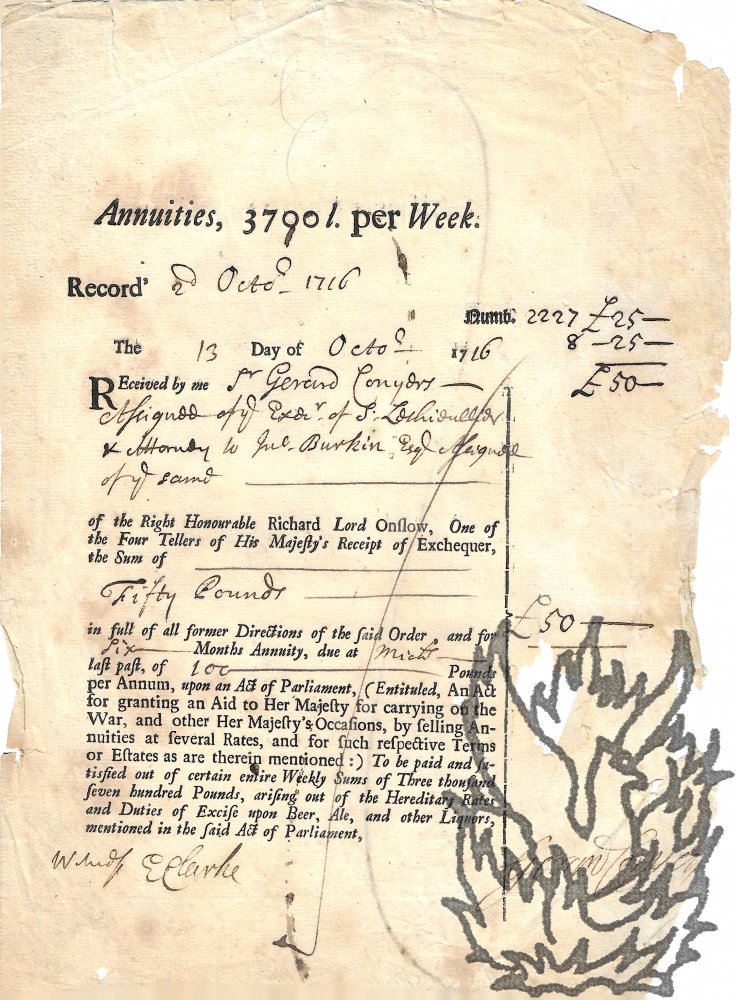 Annuities, 3700 l. per Week.
Record' 2d Octo 1716
Numb. 2227 £25—
8—25—
The 13 Day of Octo 1716
£50—
REceived by me Sr Gerard Conyers
Assignee of ye Execr. of S.
& Attorney to Jno. Burkin Esq Assignee
of ye same
of the Right Honourable Richard Lord Onſlow, One of
the Four Tellers of His Majeſty's Receipt of Exchequer,
the Sum of
Fifty Pounds
£50
in full of all former Directions of the ſaid Order, and for
Six Months Annuity, due at Michs
laſt paſt, of 100 Pounds
per Annum, upon an Act of Parliament, (Entituled, An Act
for granting an Aid to Her Majeſty for carrying on the
War, and other Her Majeſty's Occaſions, by ſelling An-
nuities at ſeveral Rates, and for ſuch reſpective Terms
or Eſtates as are therein mentioned :) To be paid and ſa-
tisfied out of certain entire Weekly Sums of Three thouſand
ſeven hundred Pounds, ariſing out of the Hereditary Rates
and Duties of Exciſe upon Beer, Ale, and other Liquors,
mentioned in the ſaid Act of Parliament,
E Clarke